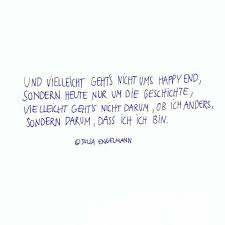 UND VIELLEICHT GEHT'S NICHT UMS HAPPY END,
SONDERN HEUTE NUR UM DIE GESCHICHTE,
VIELLEICHT GEHT'S NICHT DARUM, OB ICH ANDERS,
SONDERN DARUM, DASS ICH ICH BIN.
©JULIA ENGELMANN